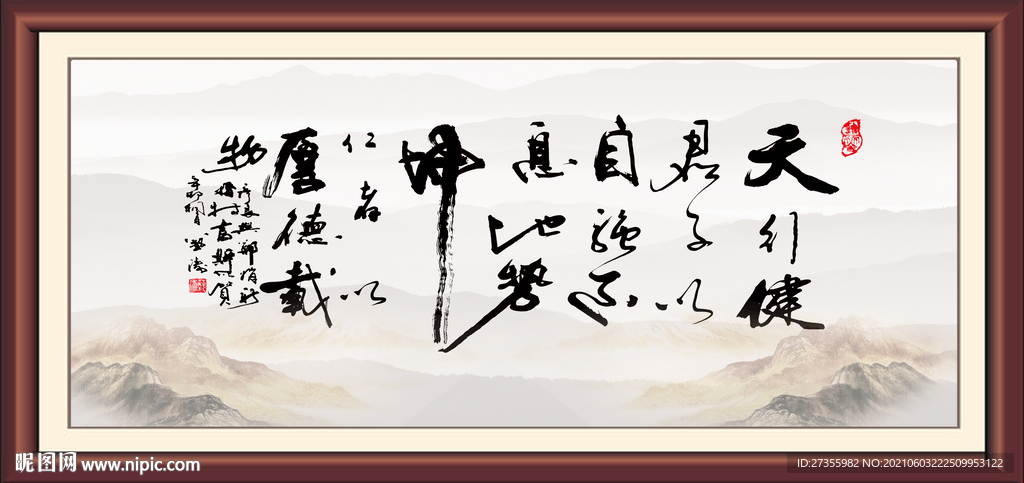 天行健
君子以
自強不
息地勢
坤
仁者以
厚德載
物
昵图网 www.nipic.com
ID:27355982 NO:20210603222509953122